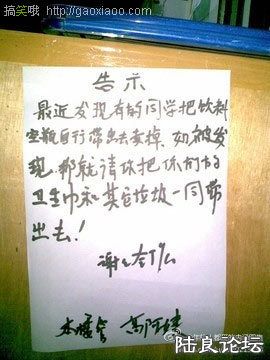 搞笑哦 http://gaoxiaoo.com
告示
最近发现有的同学把饮料
空瓶自行带出去卖掉,如被发
现,那就请你把你们的
卫生巾和其它垃圾一同带
出去!
谢谢合作
本楼
陆良论坛